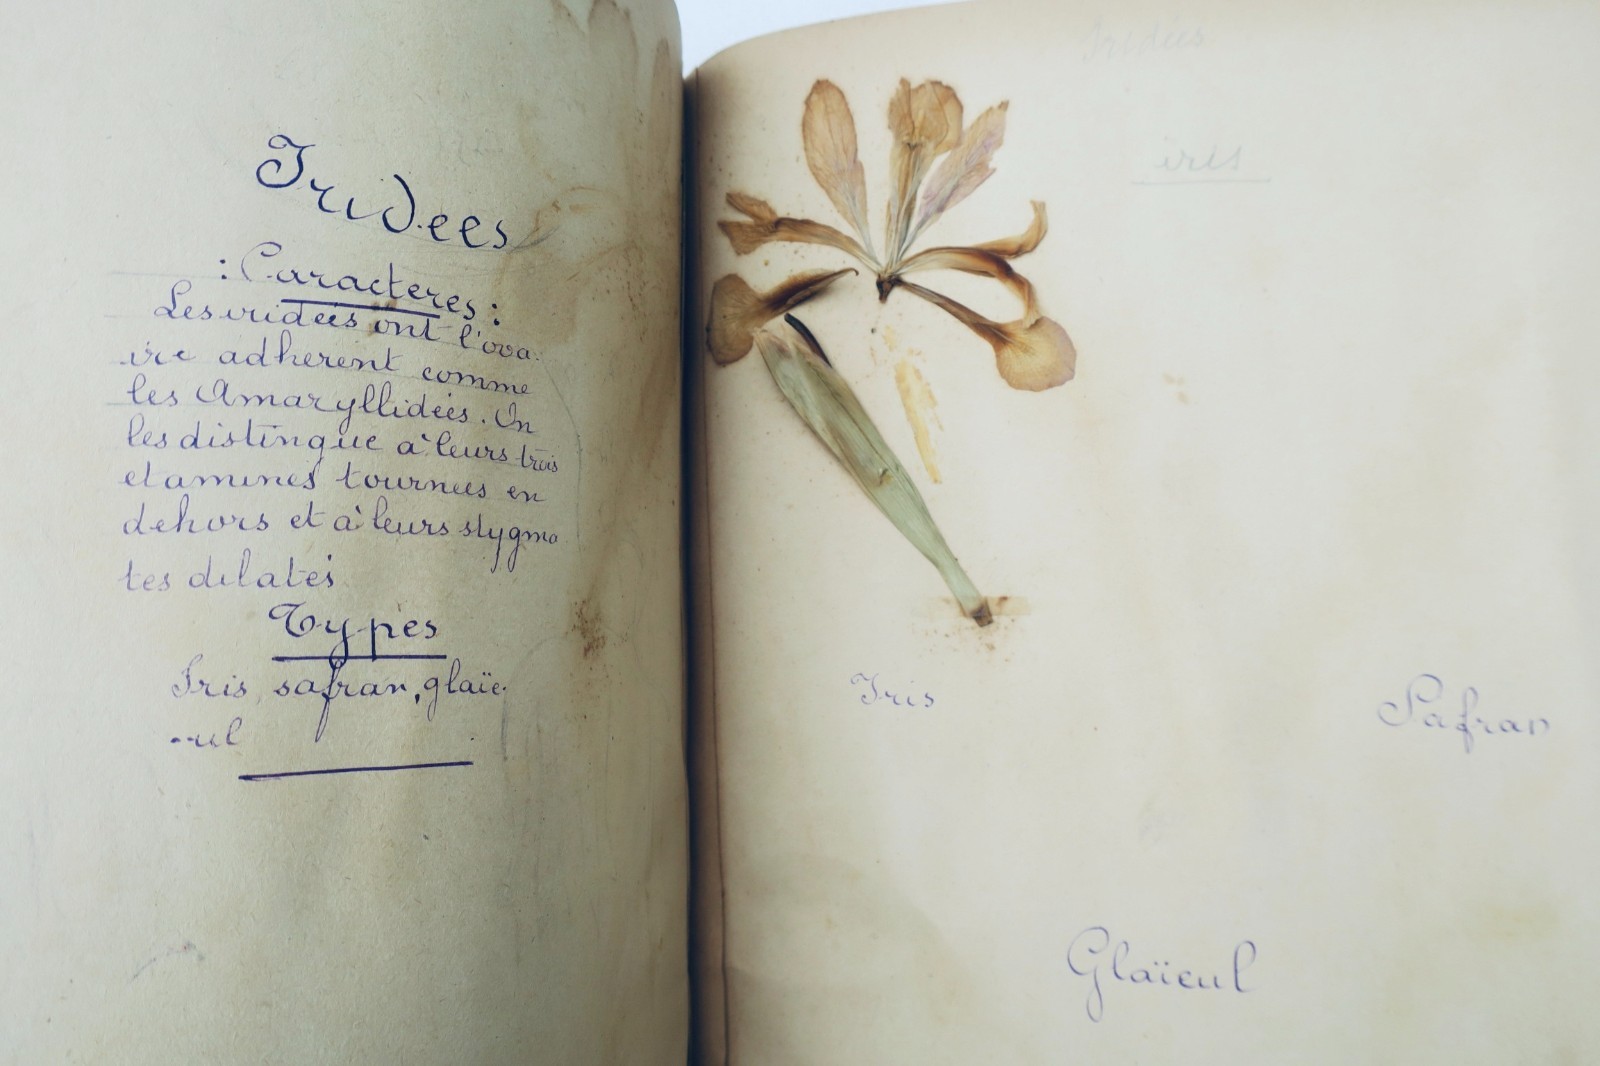 Iridees
: Caracteres :
Les iridées ont l'ova-
ire adherent comme
les Amaryllidées. On
les distingue à leurs trois
etamines tournees en
dehors et à leurs stygma
tes dilatés
Types
Iris, safran, glaïe-
-ul
Iridées
iris
Iris
Safran
Glaïeul